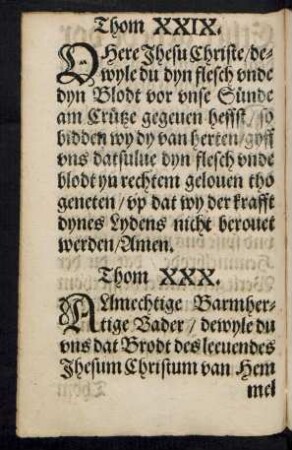 Thom XXIX.
O Here Jhesu Christe/de-
wyle du dyn flesch vnde
dyn Blodt vor vnse Sünde
am Crütze gegeuen heffst/so
bidden wy dy van herten/gyff
vns datsulue dyn flesch vnde
blodt yn rechtem gelouen tho
geneten/vp dat wy der krafft
dynes Lydens nicht berouet
werden/Amen.
Thom XXX.
ALmechtige Barmher-
tige Vader/dewyle du
vns dat Brodt des leeuendes
Jhesum Christum van Hem
mel